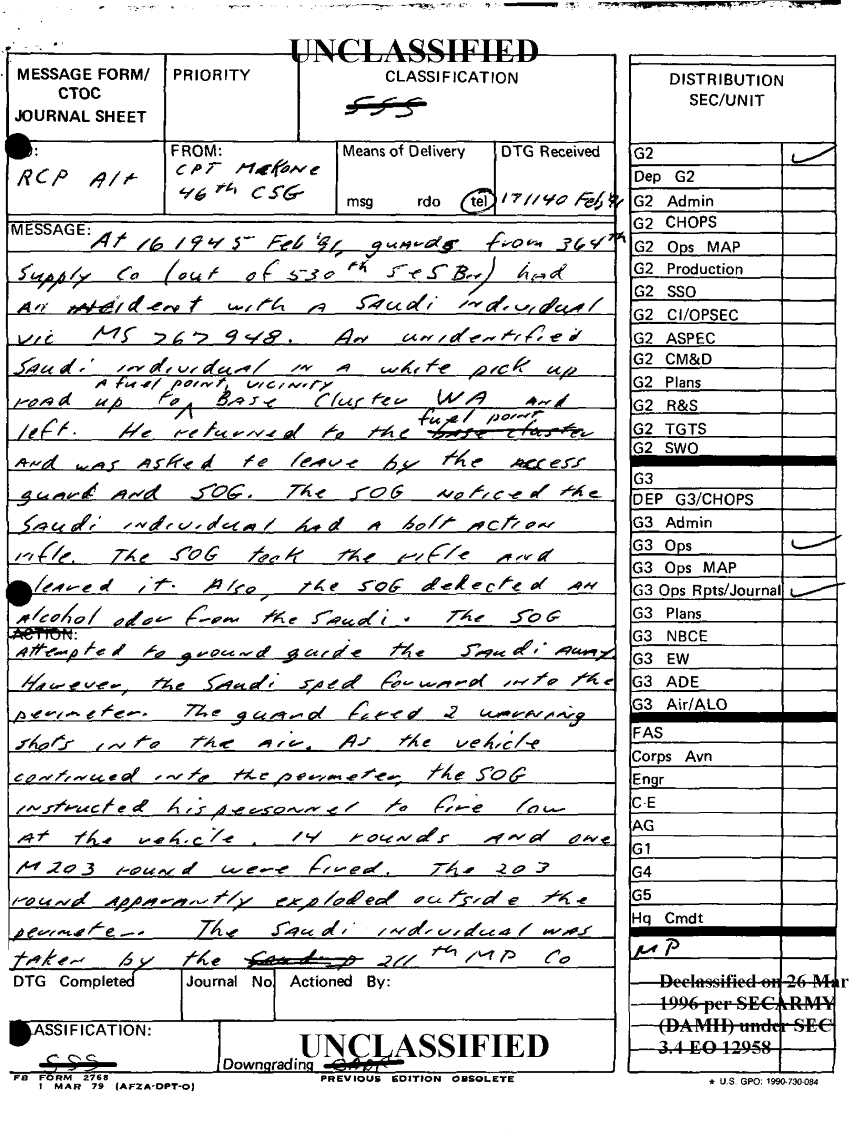 UNCLASSIFIED
MESSAGE FORM/
CTOC
JOURNAL SHEET
PRIORITY
CLASSIFICATION
SSS
FROM:
RCP Alt
CPT
46th CSG
Means of Delivery
msg rdo tel
DTG Received
171140 Feb '91
MESSAGE:
At 16 1945 Feb '91, guards from 364th
Supply Co (out of 530th S&S Bn) had
An incident with a Saudi individual
vic MS 767 948. An unidentified
Saudi individual in a white pick up
a fuel point, vicinity
road up to Base Cluster WA and
left. He returned to the base cluster
fuel point
and was asked to leave by the access
guard and SOG. The SOG noticed the
Saudi individual had a bolt action
rifle. The SOG took the rifle and
cleared it. Also, the SOG detected an
Alcohol odor from the Saudi. The SOG
ACTION:
Attempted to ground guide the Saudi away.
However, the Saudi sped forward into the
perimeter. The guard fired 2 warning
shots into the air. As the vehicle
continued into the perimeter, the SOG
instructed his personnel to fire low
at the vehicle. 14 rounds and one
M203 round were fired. The 203
round apparantly exploded outside the
perimeter. The Saudi individual was
taken by the 211th MP Co
DTG Completed
Journal No
Actioned By:
ASSIFICATION:
SSS
Downgrading
UNCLASSIFIED
FB FORM 2768
1 MAR 79 (AFZA-DPT-O)
PREVIOUS EDITION OBSOLETE
DISTRIBUTION
SEC/UNIT
G2
Dep G2
G2 Admin
G2 CHOPS
G2 Ops MAP
G2 Production
G2 SSO
G2 CI/OPSEC
G2 ASPEC
G2 CM&D
G2 Plans
G2 R&S
G2 TGTS
G2 SWO
G3
DEP G3/CHOPS
G3 Admin
G3 Ops
G3 Ops MAP
G3 Ops Rpts/Journal
G3 Plans
G3 NBCE
G3 EW
G3 ADE
G3 Air/ALO
FAS
Corps Avn
Engr
C-E
AG
G1
G4
G5
Hq Cmdt
MP
Declassified on 26 Mar
1996 per SECARMY
(DAMH) under SEC
3.4 EO 12958
* U.S. GPO: 1990-730-084